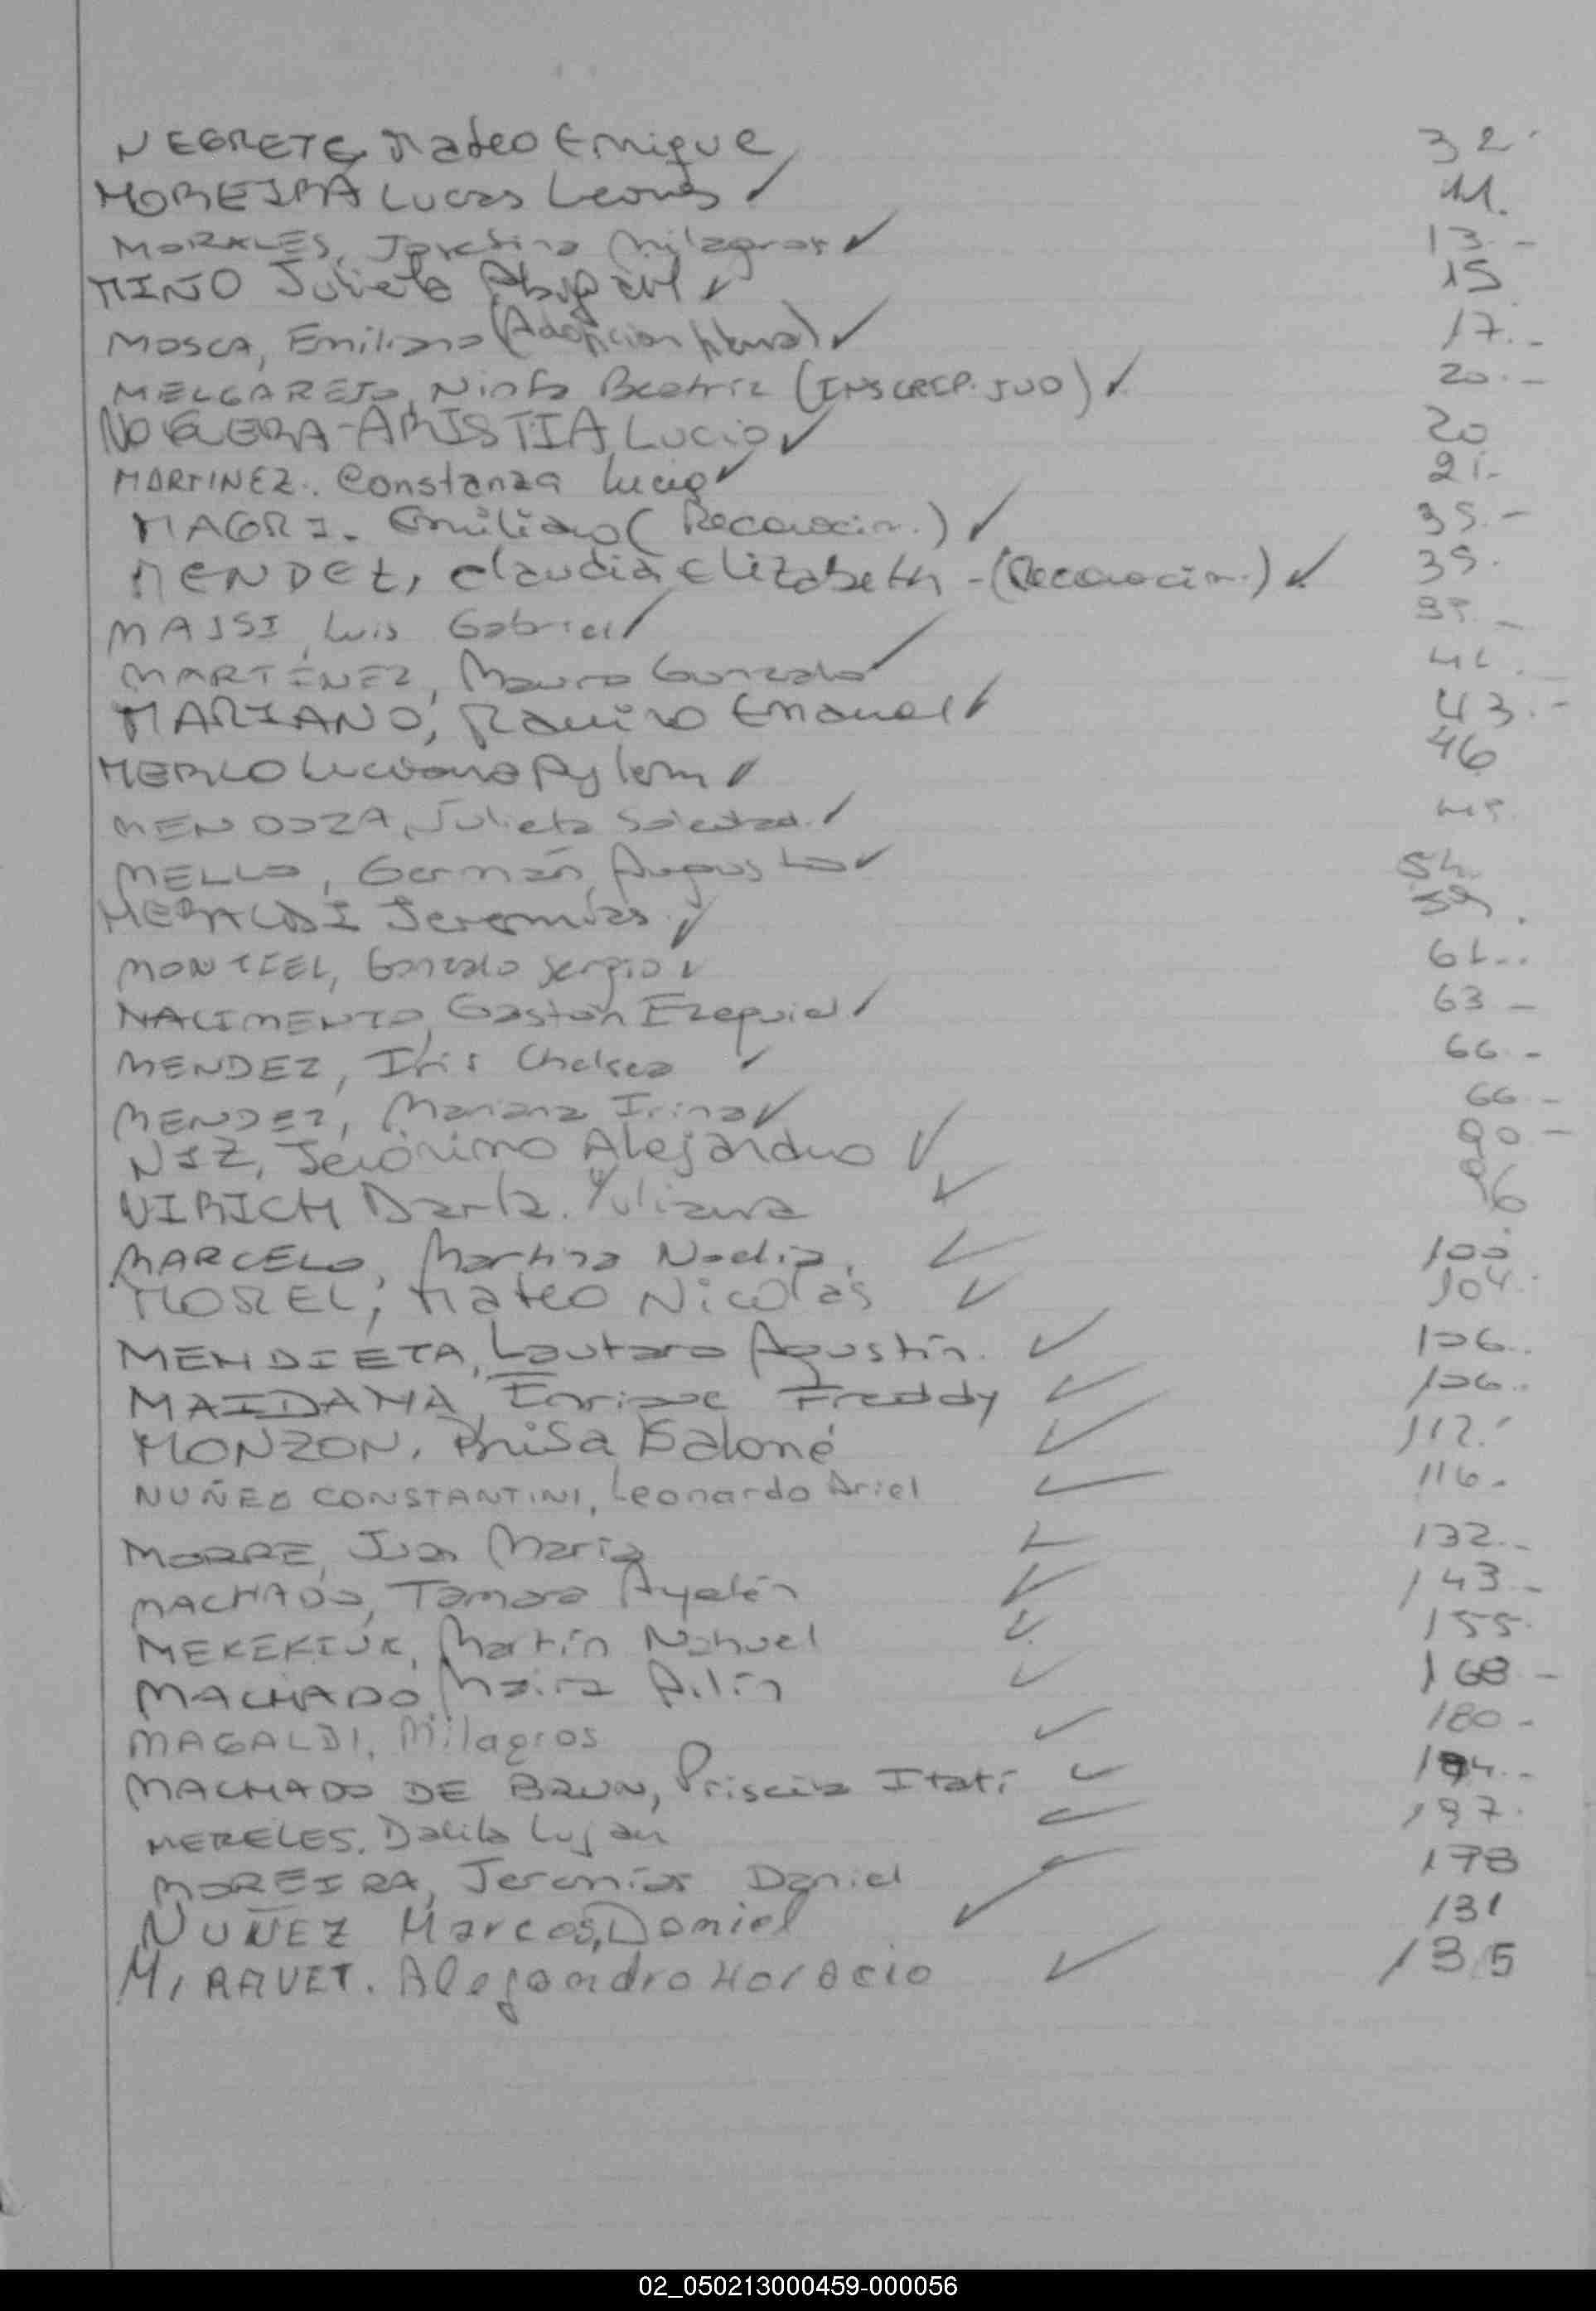 NEGRETE, Mateo Enrique 32.
MOREIRA Lucas Leonés ✓ 11.
MORALES, Josefina Milagros ✓ 13.-
MIÑO Julieta Abigail ✓ 15
MOSCA, Emiliano (Adopción plena) ✓ 17.-
MELGAREJO, Ninfa Beatriz (INSCRIP. JUD) ✓ 20.-
NOGUERA-ARISTIA, Lucio ✓ 20
MARTINEZ. Constanza Lucia ✓ 21.-
MAGRI. Emiliano (Reconocim.) ✓ 35.-
MENDEZ, Claudia Elizabeth - (Reconocim.) ✓ 39.
MAISSI, Luis Gabriel ✓
MARTÍNEZ, Mauro Gonzalo ✓
MARIANO, Ramiro Emanuel ✓ 43.-
MERLO Luciana Aylem ✓ 46
MENDOZA, Julieta Soledad. ✓
MELLO, Germán Augusto ✓ 54.
MERALDI Jeremías ✓ 59.
MONTIEL, Gonzalo Sergio ✓ 61..
NACIMENTO, Gastón Ezequiel ✓ 63 -
MENDEZ, Iris Chelsea ✓ 66.-
MENDEZ, Mariana Irina ✓ 66 -
NIZ, Jerónimo Alejandro ✓ 90 -
NIRICH Darla. Yuliana ✓ 96
MARCELO, Martina Nadia. ✓ 100
MOREL, Mateo Nicolás ✓ 104.
MENDIETA, Lautaro Agustín. ✓ 106..
MAIDANA, Enrique Freddy ✓ 106..
MONZON, Brisa Salomé ✓ 112.
NUÑEZ CONSTANTINI, Leonardo Ariel ✓ 116.
MORRE, Juan María ✓ 132..
MACHADO, Tamara Ayelén ✓ 143.-
MEKEKIUK, Martín Nahuel ✓ 155.
MACHADO, Maira Ailín ✓ 168 -
MAGALDI, Milagros ✓ 180 -
MACHADO DE BRUN, Priscila Itatí ✓ 194..
MERELES, Dalila Lujan ✓ 197.
MOREIRA, Jeremías Daniel ✓ 178
NUÑEZ Marcos, Damiel ✓ 131
MIRAVET. Alejandro Horacio ✓ 135
02_050213000459-000056